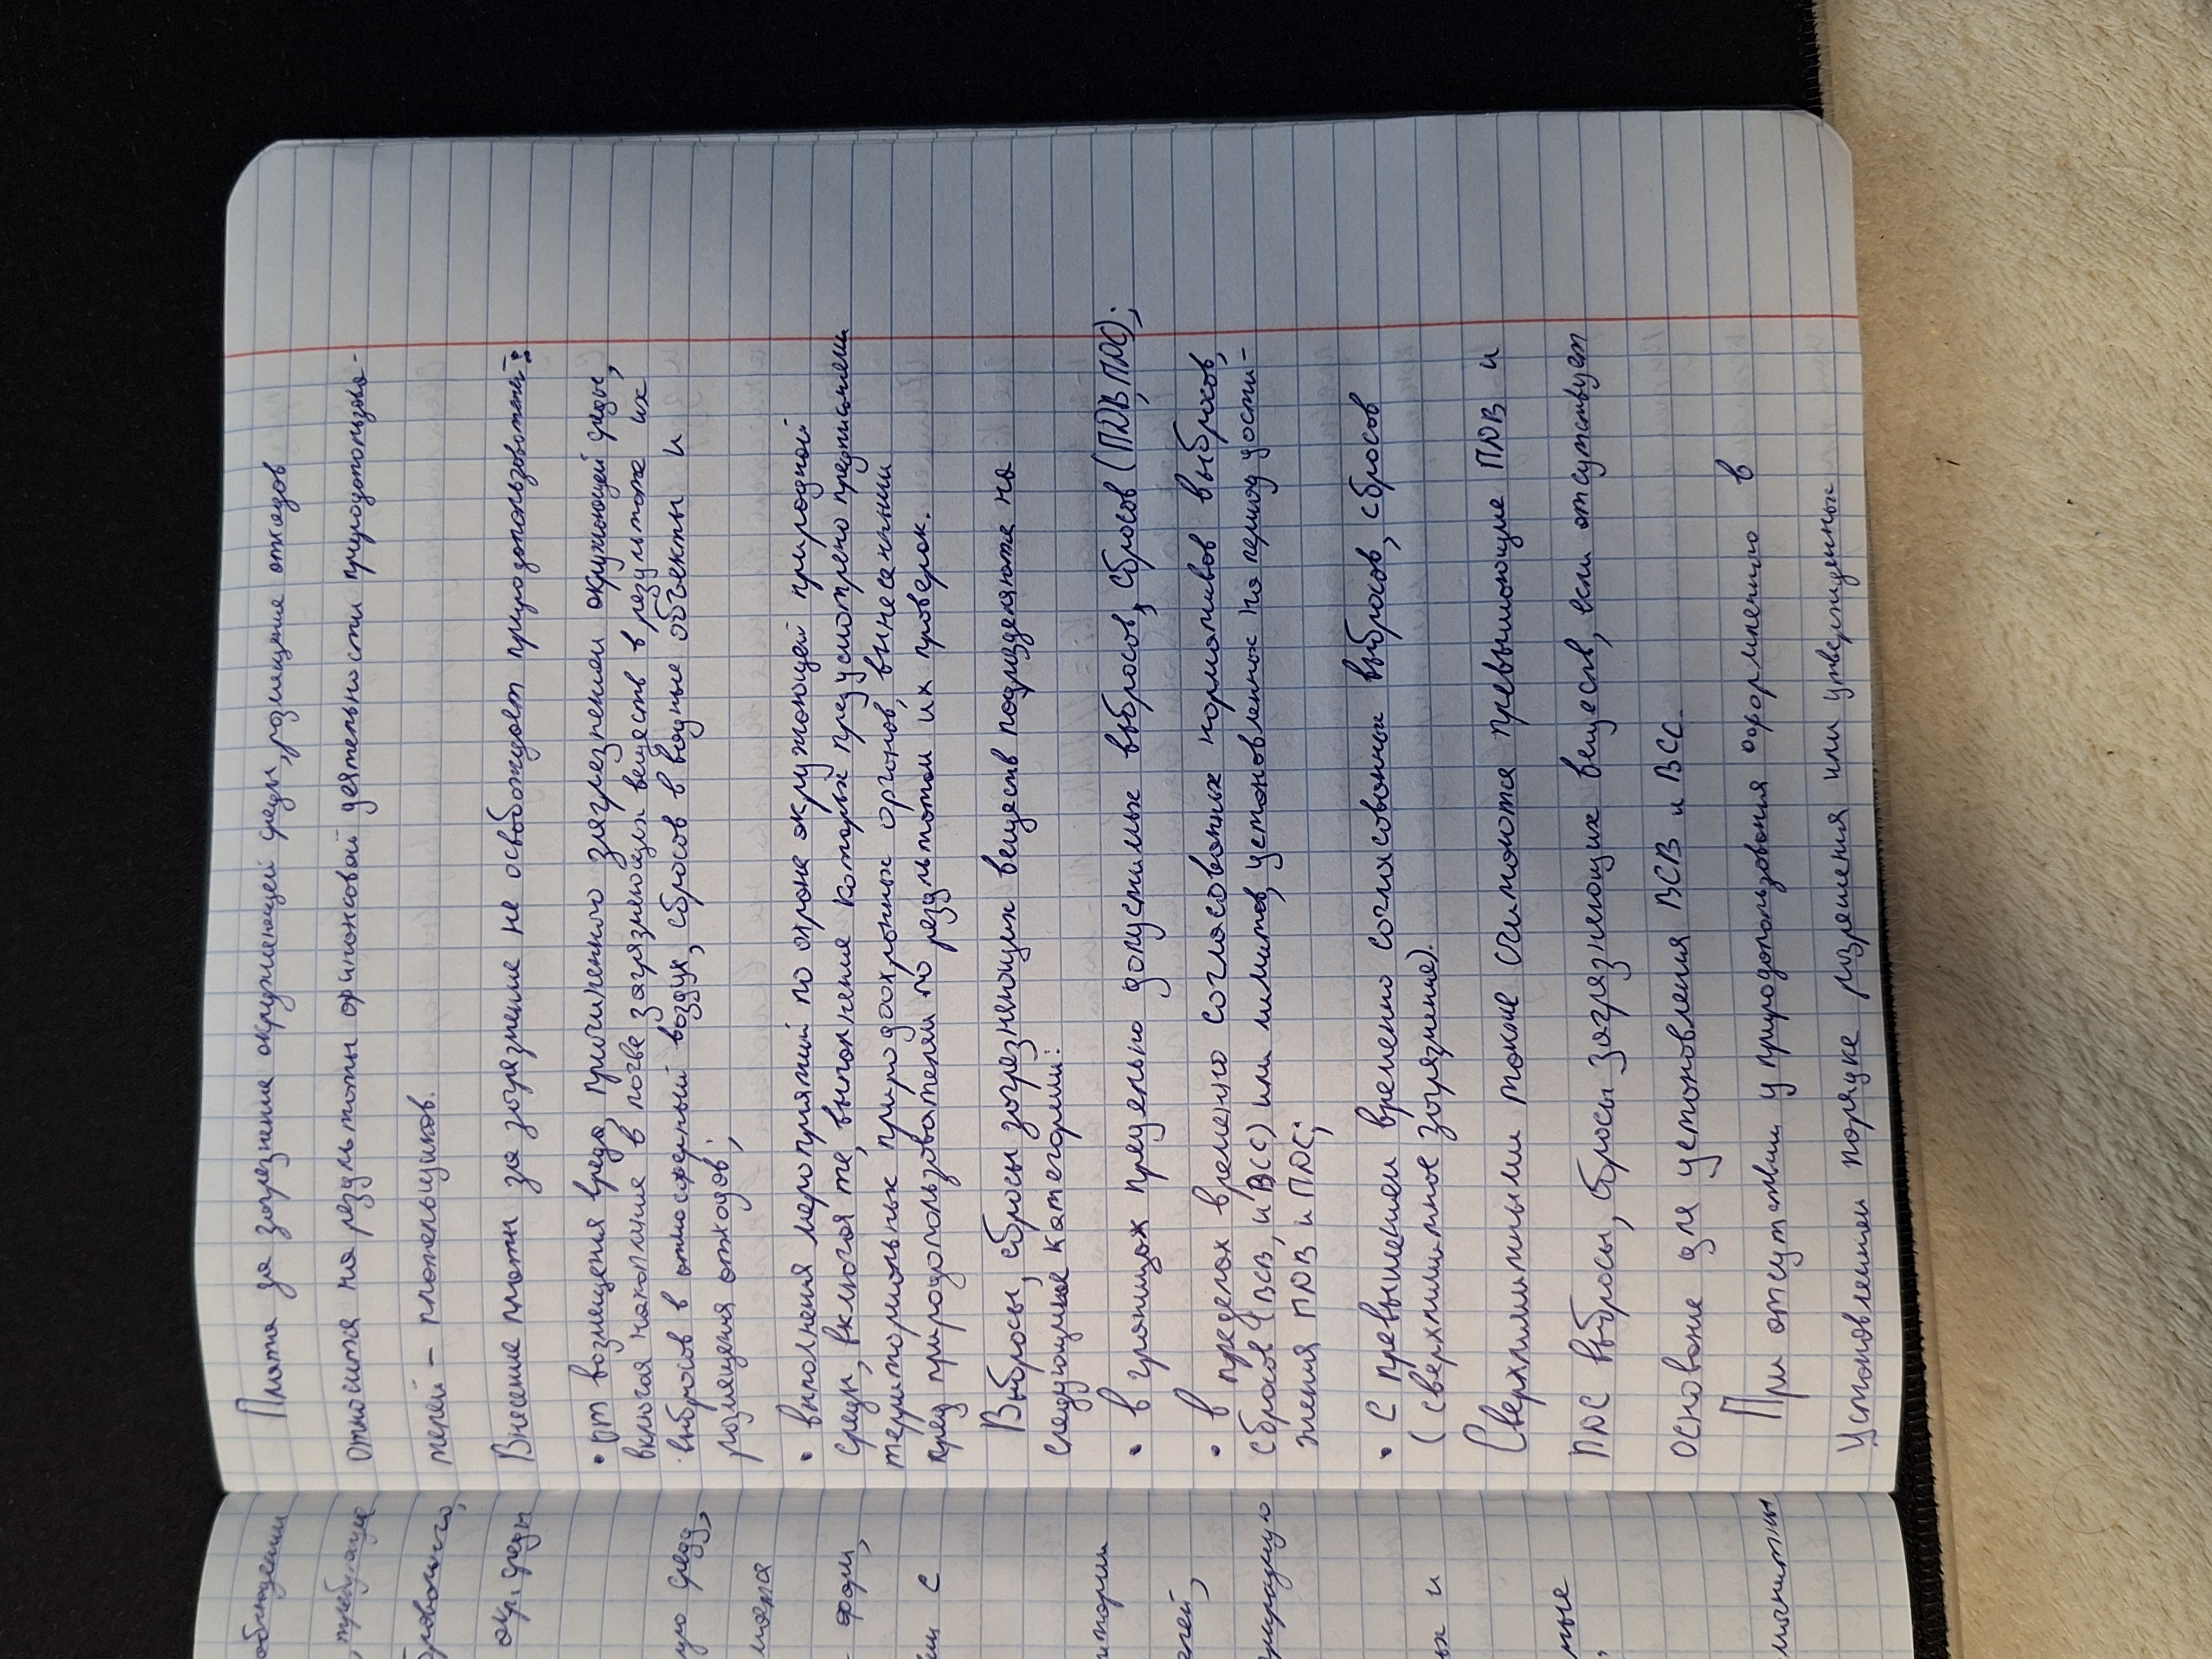 Плата за загрязнение окружающей среды, размещение отходов
относится на результаты финансовой деятельности природопользова-
телей - плательщиков.
Внесение платы за загрязнение не освобождает природопользователей:
• от возмещения вреда, причиненного загрязнением окружающей среды,
включая накопление в почве загрязняющих веществ в результате их
выбросов в атмосферный воздух, сбросов в водные объекты и
размещения отходов;
• выполнения мероприятий по охране окружающей природной
среды, включая те, выполнение которых предусмотрено предписаниями
территориальных природоохранных органов, вынесенными
пред природопользователям по результатам их проверок.
Выбросы, сбросы загрязняющих веществ подразделяются на
следующие категории:
• в границах предельно допустимых выбросов, сбросов (ПДВ, ПДС);
• в пределах временно согласованных нормативов выбросов,
сбросов (ВСВ, и ВСС) или лимитов, установленных на период дости-
жения ПДВ и ПДС;
• с превышением временно согласованных выбросов, сбросов
(сверхлимитное загрязнение).
Сверхлимитными также считаются превышающие ПДВ и
ПДС выбросы, сбросы загрязняющих веществ, если отсутствует
основание для установления ВСВ и ВСС.
При отсутствии у природопользования оформленного в
установленном порядке разрешения или утвержденных
обобщении
окр. среды
ую среду,
форм,
ми с
ых и